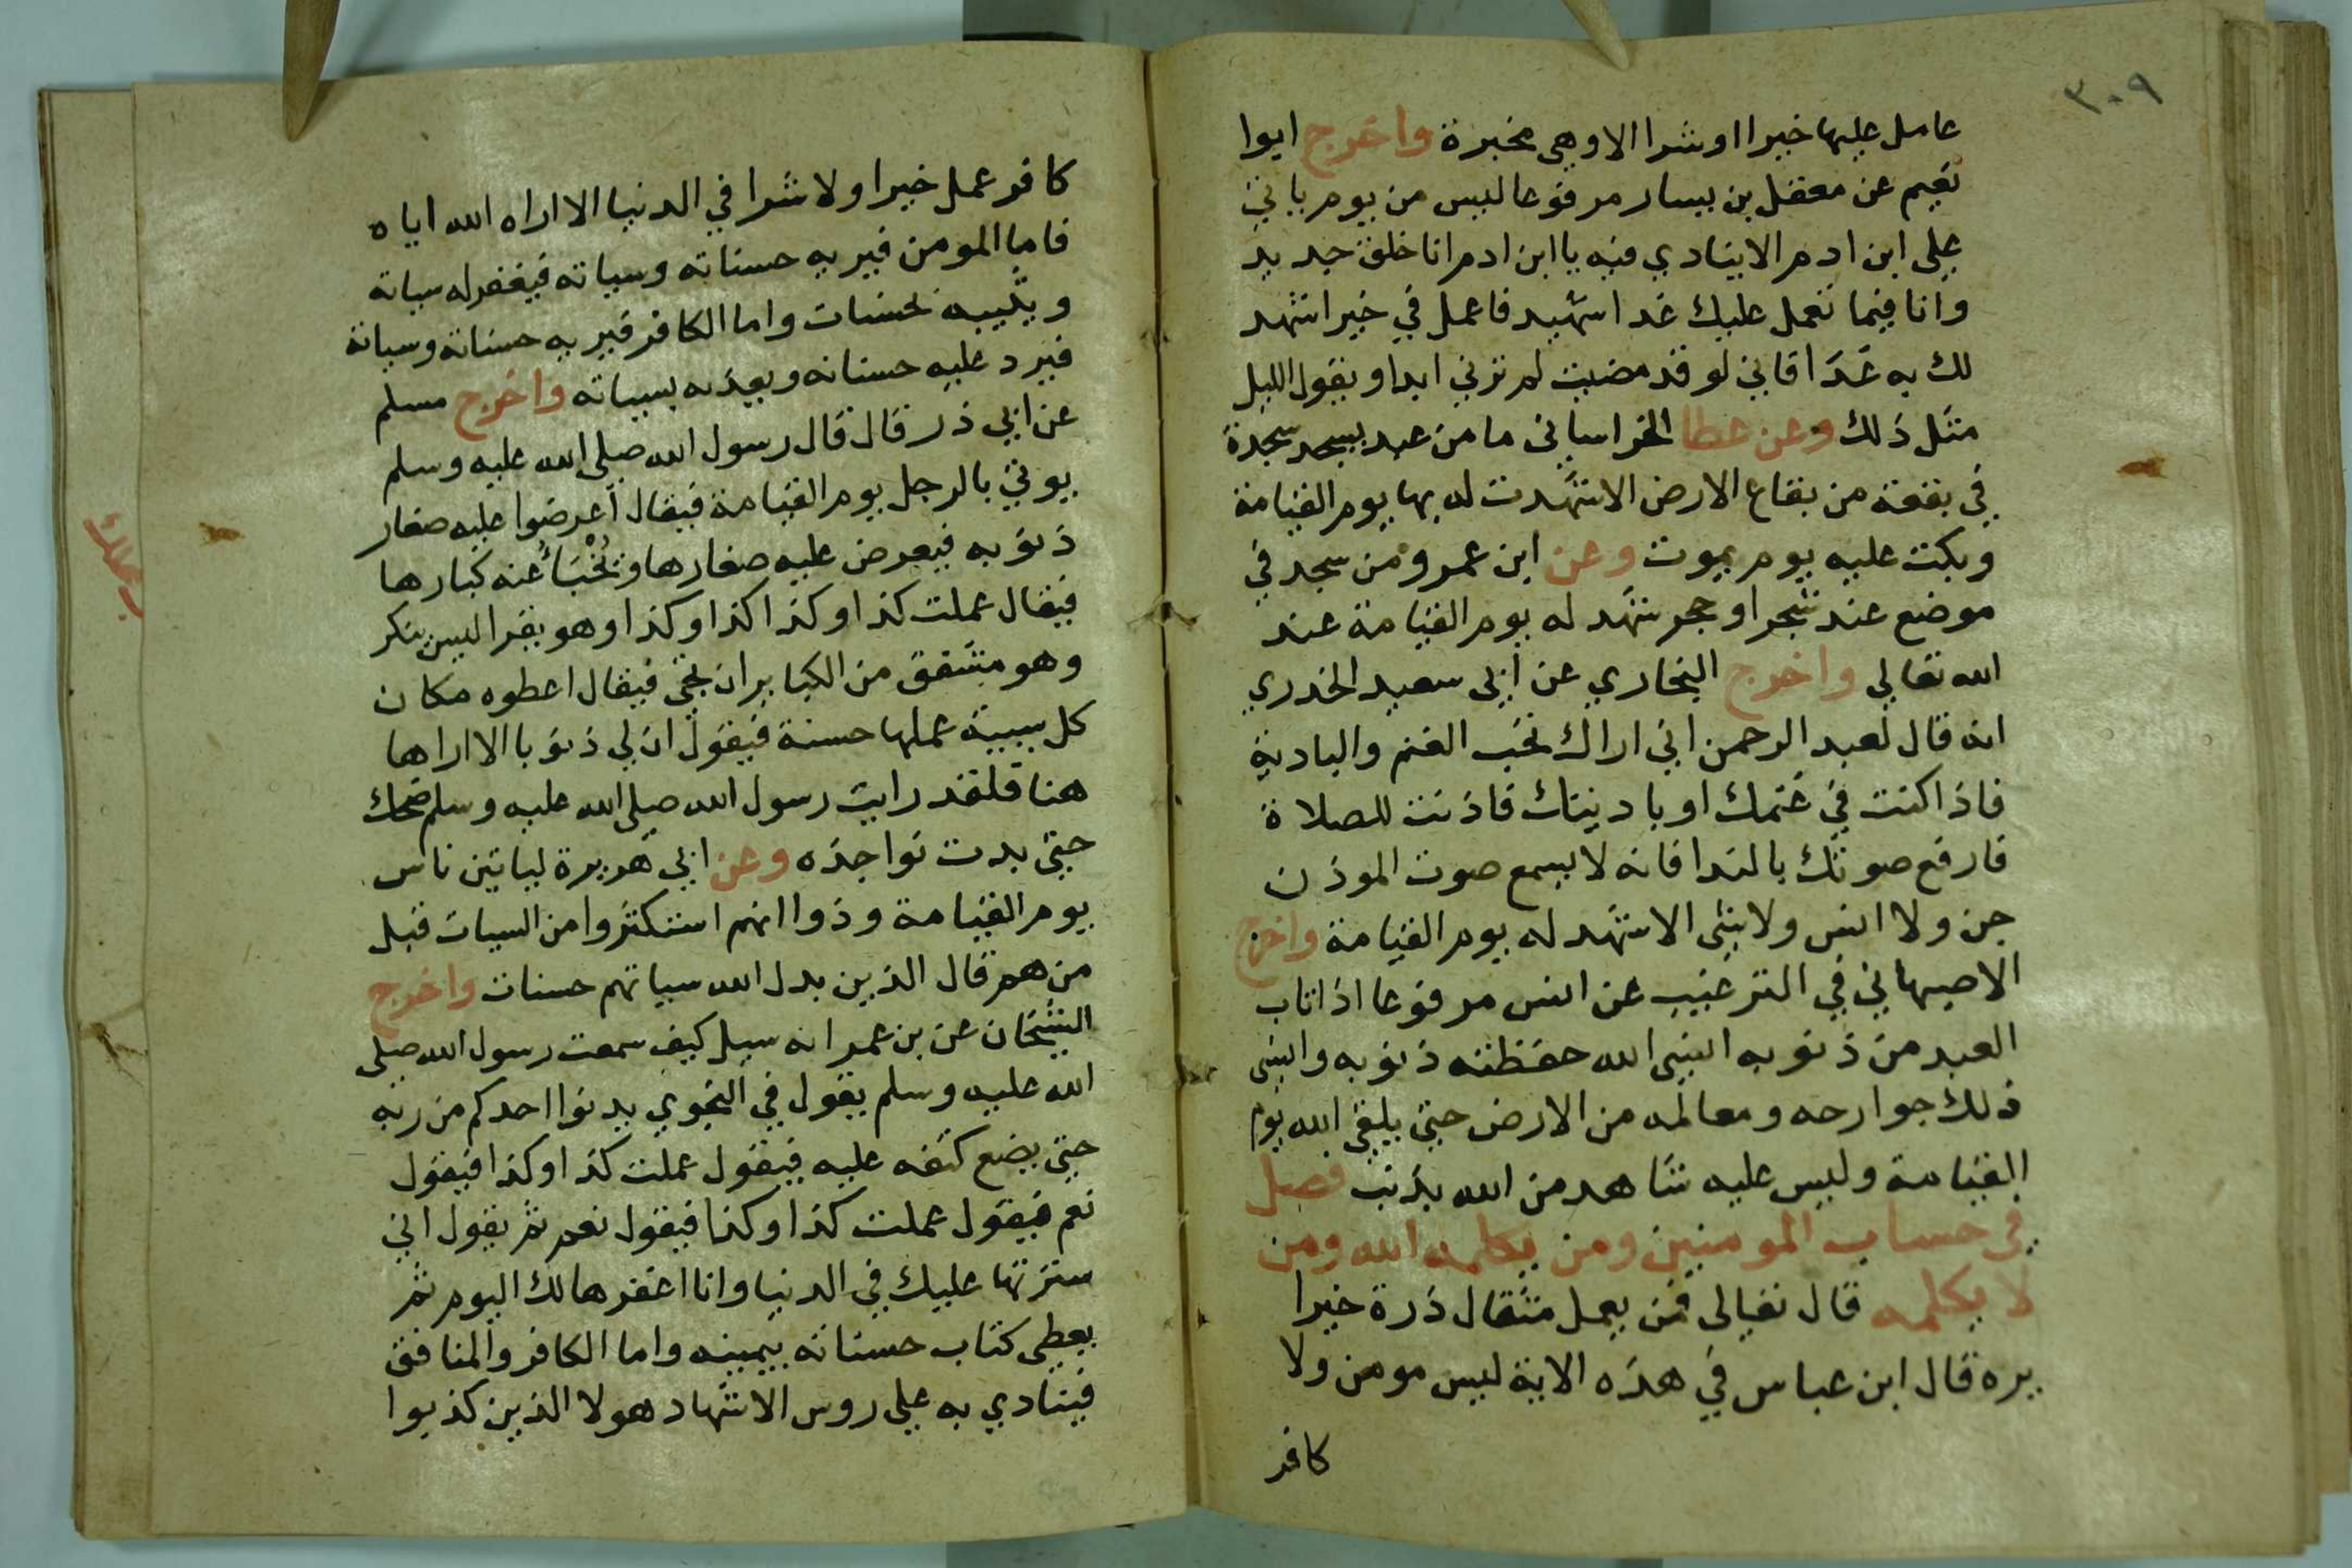 ٣٠٩
عامل عليها خيرا او شرا الا وهي مخبرة واخرج ابوا
نعيم عن معقل بن يسار مرفوعا ليس من يوم ياتي
على ابن ادم الا ينادي فيه يا ابن ادم انا خلق جديد
وانا فيما تعمل عليك غدا شهيد فاعمل في خيرا اشهد
لك به غدا فاني لو قد مضيت لم ترني ابدا ويقول الليل
مثل ذلك وعن عطا الخراساني ما من عبد يسجد سجدة
في بقعة من بقاع الارض الا شهدت له بها يوم القيامة
وبكت عليه يوم يموت وعن ابن عمرو من سجد في
موضع عند شجر او حجر شهد له يوم القيامة عند
الله تعالي واخرج البخاري عن ابي سعيد الخدري
انه قال لعبد الرحمن اني اراك تحب الغنم والبادية
فاذا كنت في غنمك او باديتك فاذنت للصلاة
فارفع صوتك بالندا فانه لا يسمع صوت الموذن
جن ولا انس ولا شي الا شهد له يوم القيامة واخرج
الاصبهاني في الترغيب عن انس مرفوعا اذا تاب
العبد من ذنوبه انسي الله حفظته ذنوبه وانسى
ذلك جوارحه ومعالمه من الارض حتى يلقى الله يوم
القيامة وليس عليه شاهد من الله بذنب فصل
في حساب المومنين ومن يكلمه الله ومن
لا يكلمه قال تعالى فمن يعمل مثقال ذرة خيرا
يره قال ابن عباس في هذه الاية ليس مومن ولا
كافر
كافر عمل خيرا ولا شرا في الدنيا الا اراه الله اياه
فاما المومن فيريه حسناته وسياته فيغفر له سياته
ويثيبه بحسنات واما الكافر فيريه حسناته وسياته
فيرد عليه حسناته ويعذبه بسيياته واخرج مسلم
عن ابي ذر قال قال رسول الله صلى الله عليه وسلم
يوتي بالرجل يوم القيامة فيقال اعرضوا عليه صغار
ذنوبه فيعرض عليه صغارها وتخبأ عنه كبارها
فيقال عملت كذا وكذا كذا وكذا وهو يقر اليس ينكر
وهو مشفق من الكباير ان تجي فيقال اعطوه مكان
كل سيية عملها حسنة فيقول ان لي ذنوبا لا اراها
هنا فلقد رايت رسول الله صلى الله عليه وسلم ضحك
حتى بدت نواجذه وعن ابي هريرة لياتين ناس
يوم القيامة ودوا انهم استكثروا من السيات قيل
من هم قال الذين بدل الله سياتهم حسنات واخرج
الشيخان عن بن عمر انه سيل كيف سمعت رسول الله صلى
الله عليه وسلم يقول في النجوي يدنوا احدكم من ربه
حتى يضع كنفه عليه فيقول عملت كذا وكذا فيقول
نعم فيقول عملت كذا وكذا فيقول نعم ثم يقول اني
سترتها عليك في الدنيا وانا اغفرها لك اليوم ثم
يعطى كتاب حسناته بيمينه واما الكافر والمنافق
فينادي به على روس الاشهاد هولا الذين كذبوا